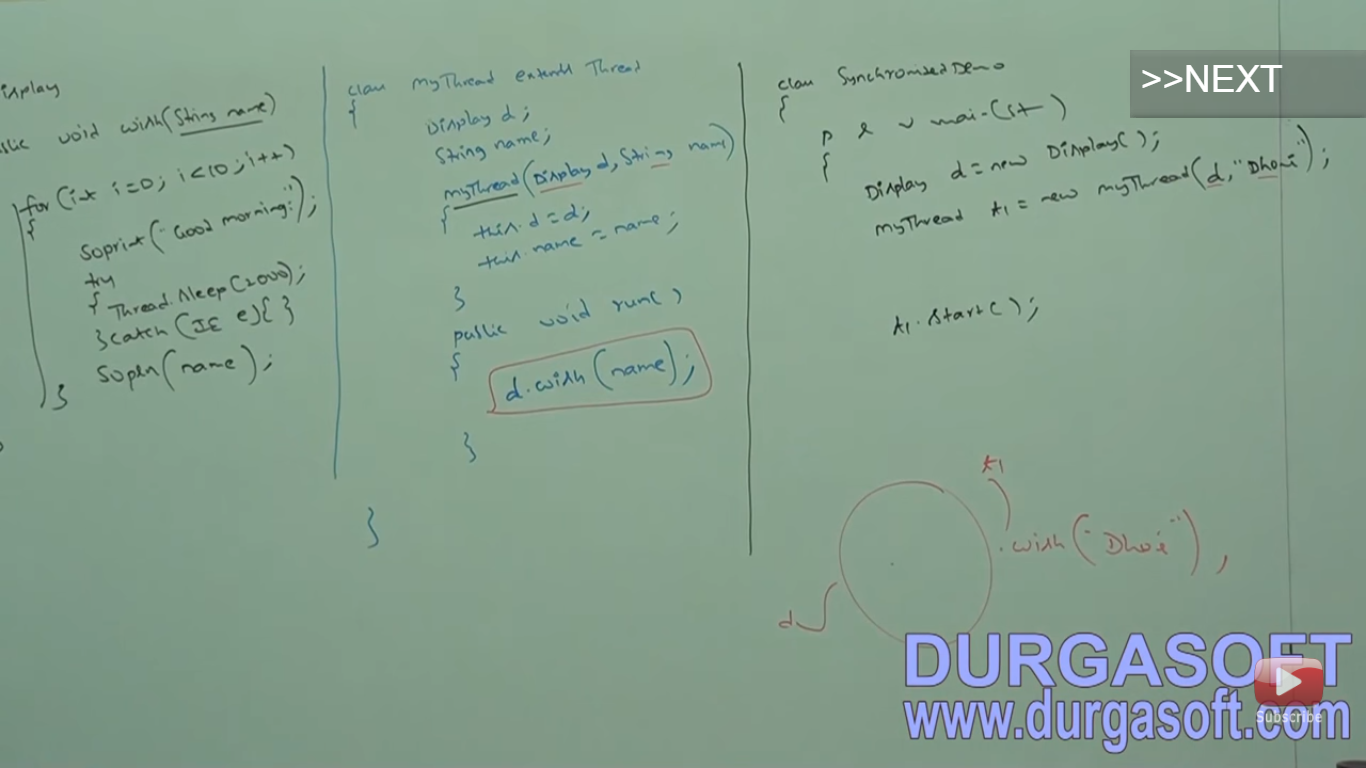 isplay
blic void wish(String name)
for(int i=0; i<10; i++)
{
Soprint("Good morning:");
try
{ Thread.sleep(2000);
}catch(IE e){ }
Sopln(name);
}
class myThread extends Thread
{
Display d;
String name;
myThread(Display d, String name)
{
this.d=d;
this.name=name;
}
public void run()
{
d.wish(name);
}
}
class SynchronizedDemo
{
p s v main(St )
{
Display d=new Display();
myThread t1=new myThread(d,"Dhoni");
t1.start();
t1
.wish("Dhoni");
d
>>NEXT
DURGASOFT
www.durgasoft.com
Subscribe